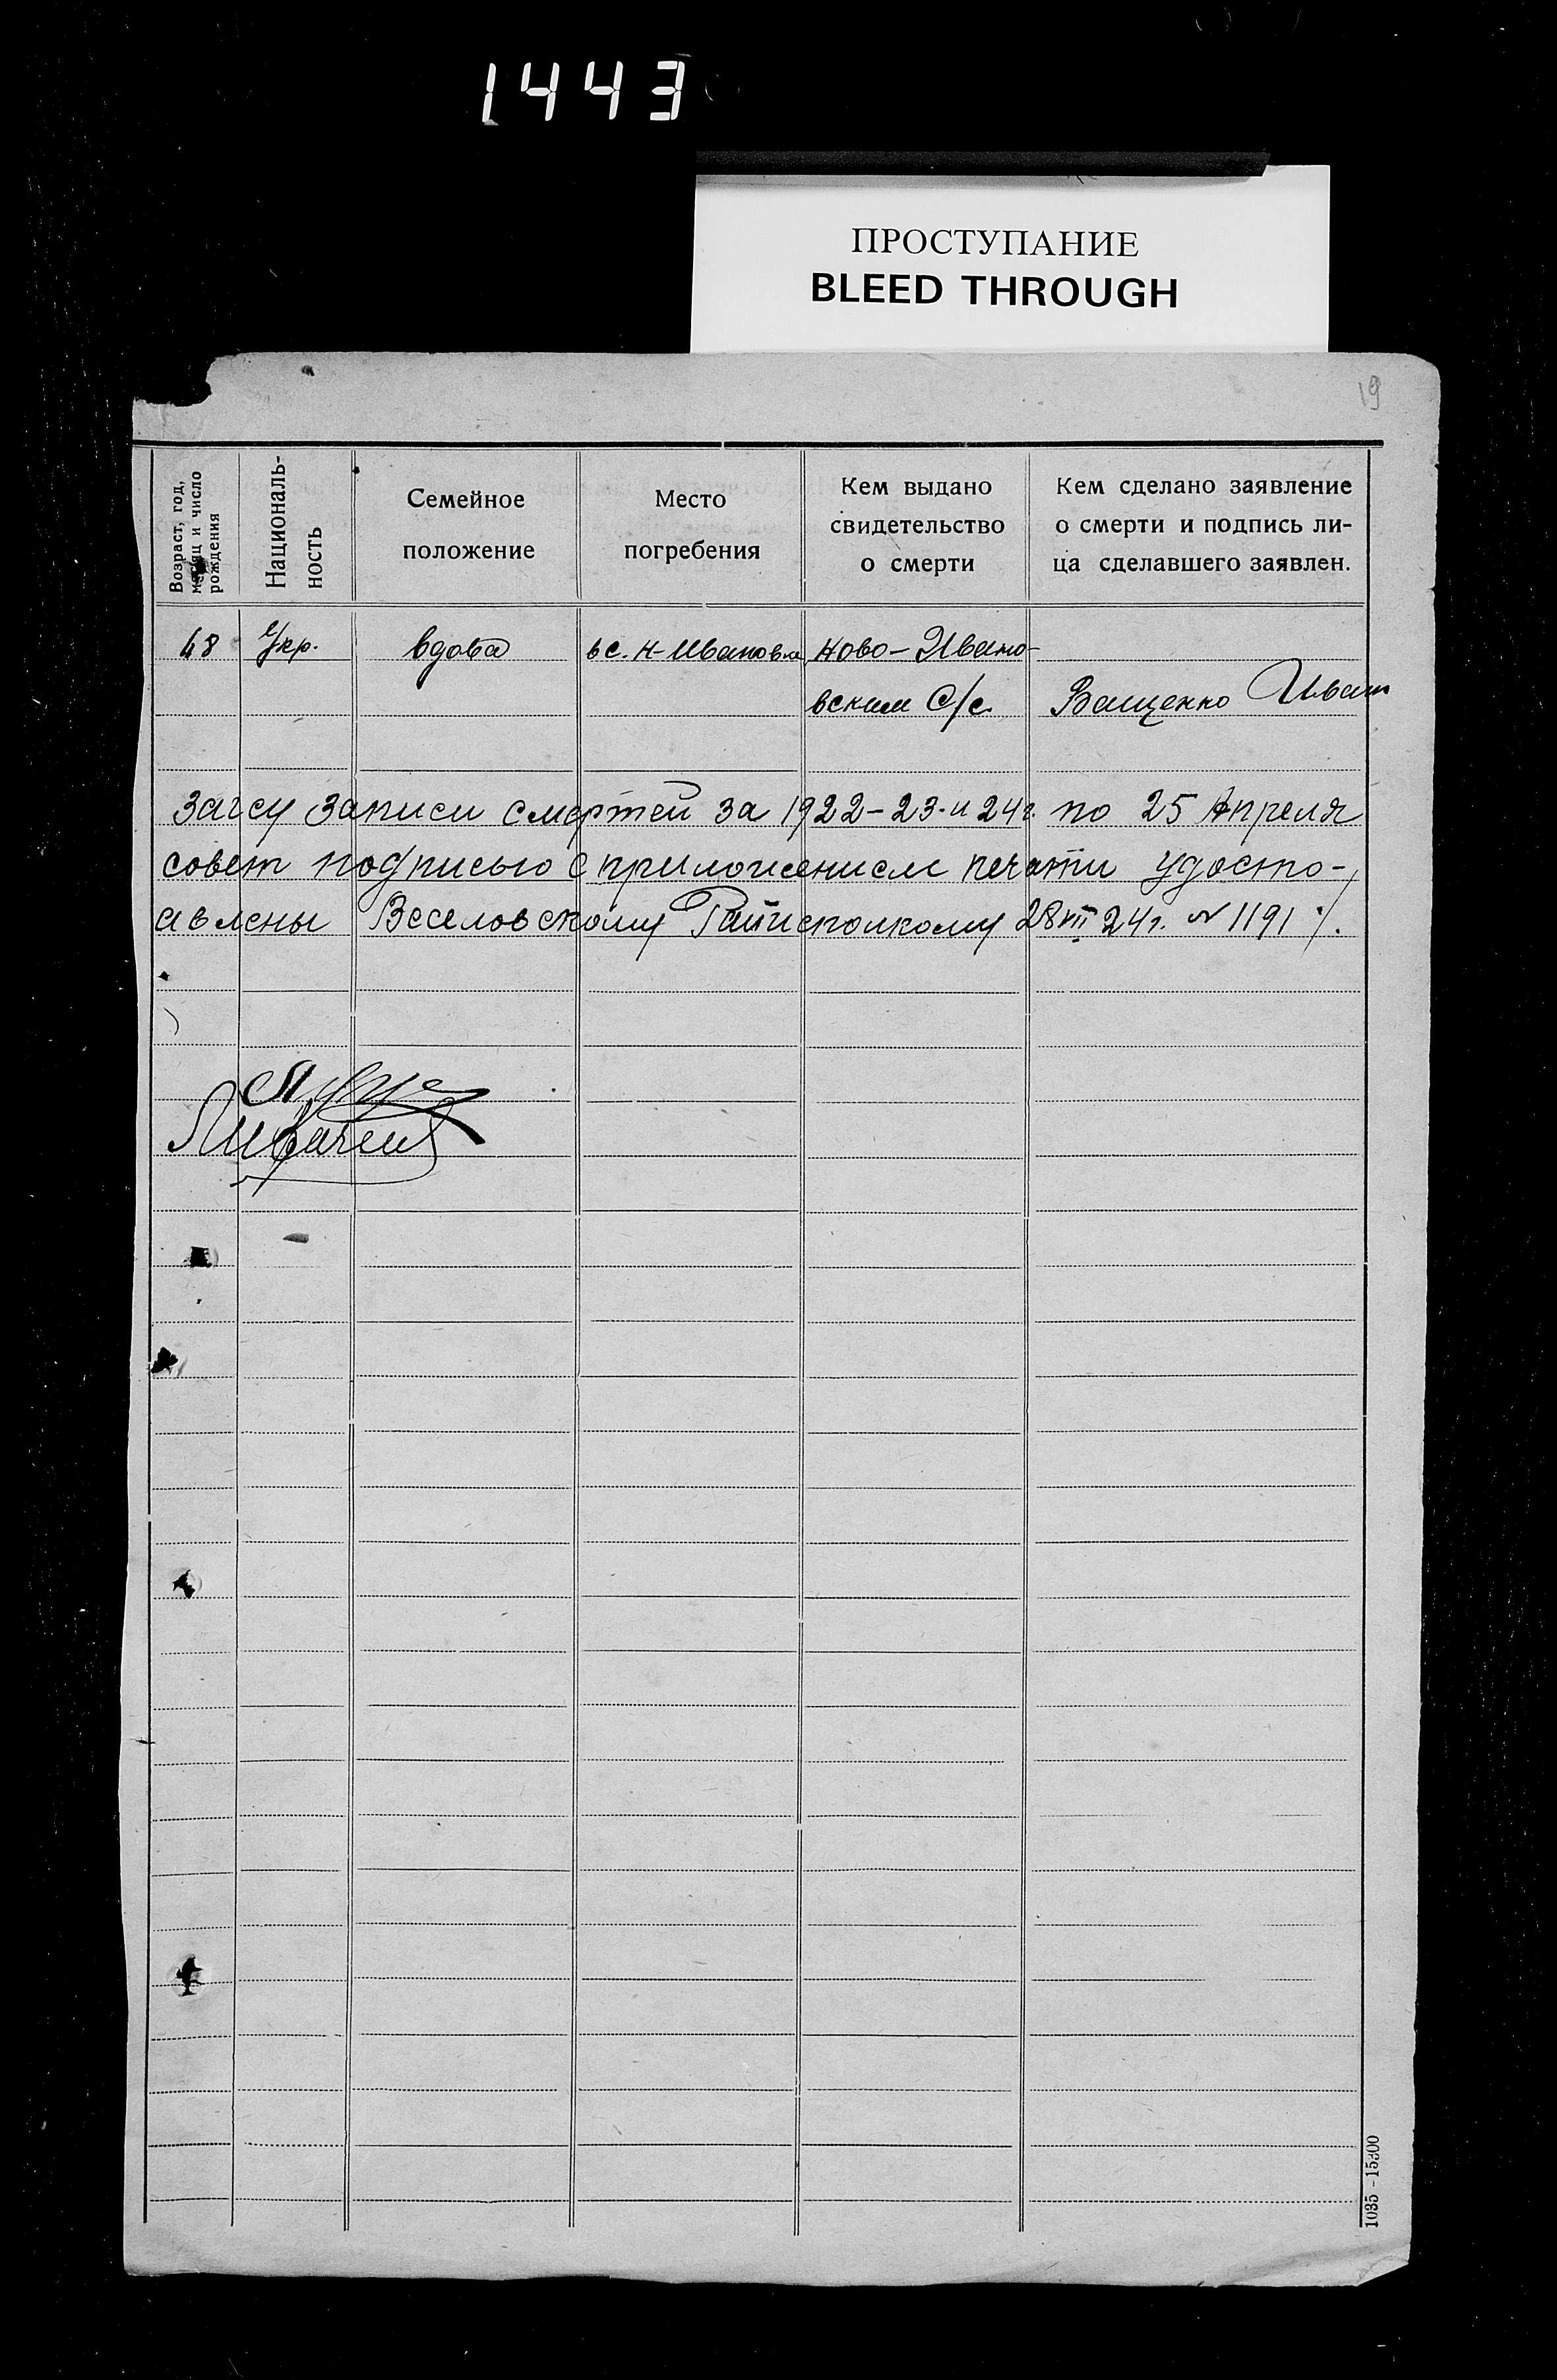 1443
ПРОСТУПАНИЕ
BLEED THROUGH
19
Возраст, год,
месяц и число
рождения
Националь-
ность
Семейное
положение
Место
погребения
Кем выдано
свидетельство
о смерти
Кем сделано заявление
о смерти и подпись ли-
ца сделавшего заявлен.
48 Укр. вдова в с. Н-Ивановка Ново-Ивано-
вским С/с. Ващенко Иван
Загсу записи смертей за 1922-23-и 24г. по 25 Апреля
совет подписью с приложением печати удосто-
авлены Веселовскому Райисполкому 28 VIII 24г. № 1191 ·/.
1035 - 15300